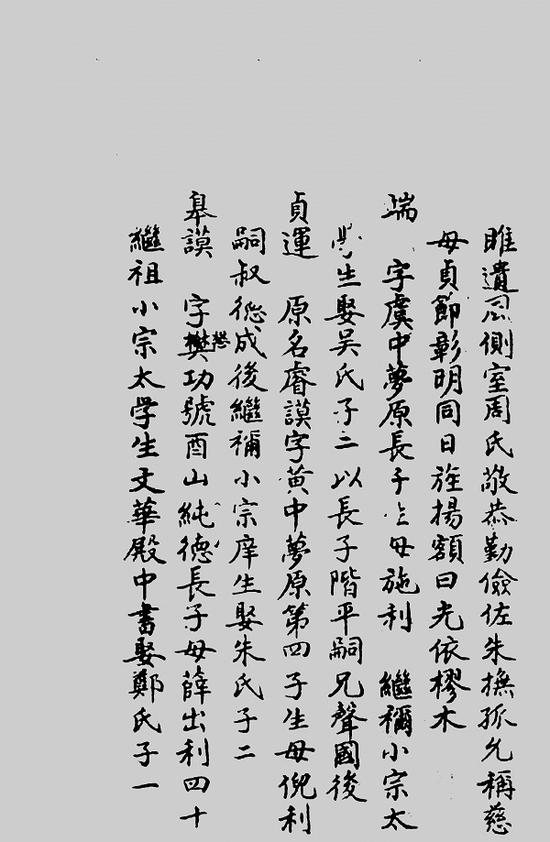 雎遺風側室周氏敬恭勤儉佐朱撫孤允稱慈
母貞節彰明同日旌揚額曰光依樛木
瑞 字虞中夢原長子生母施利 繼禰小宗太
學生娶吳氏子二以長子階平嗣兄聲國後
貞運 原名睿謨字黄中夢原第四子生母倪利
嗣叔德成後繼禰小宗庠生娶朱氏子二
皋謨 字樊功號酉山純德長子母薛出利四十
繼祖小宗太学生文華殿中書娶鄭氏子一